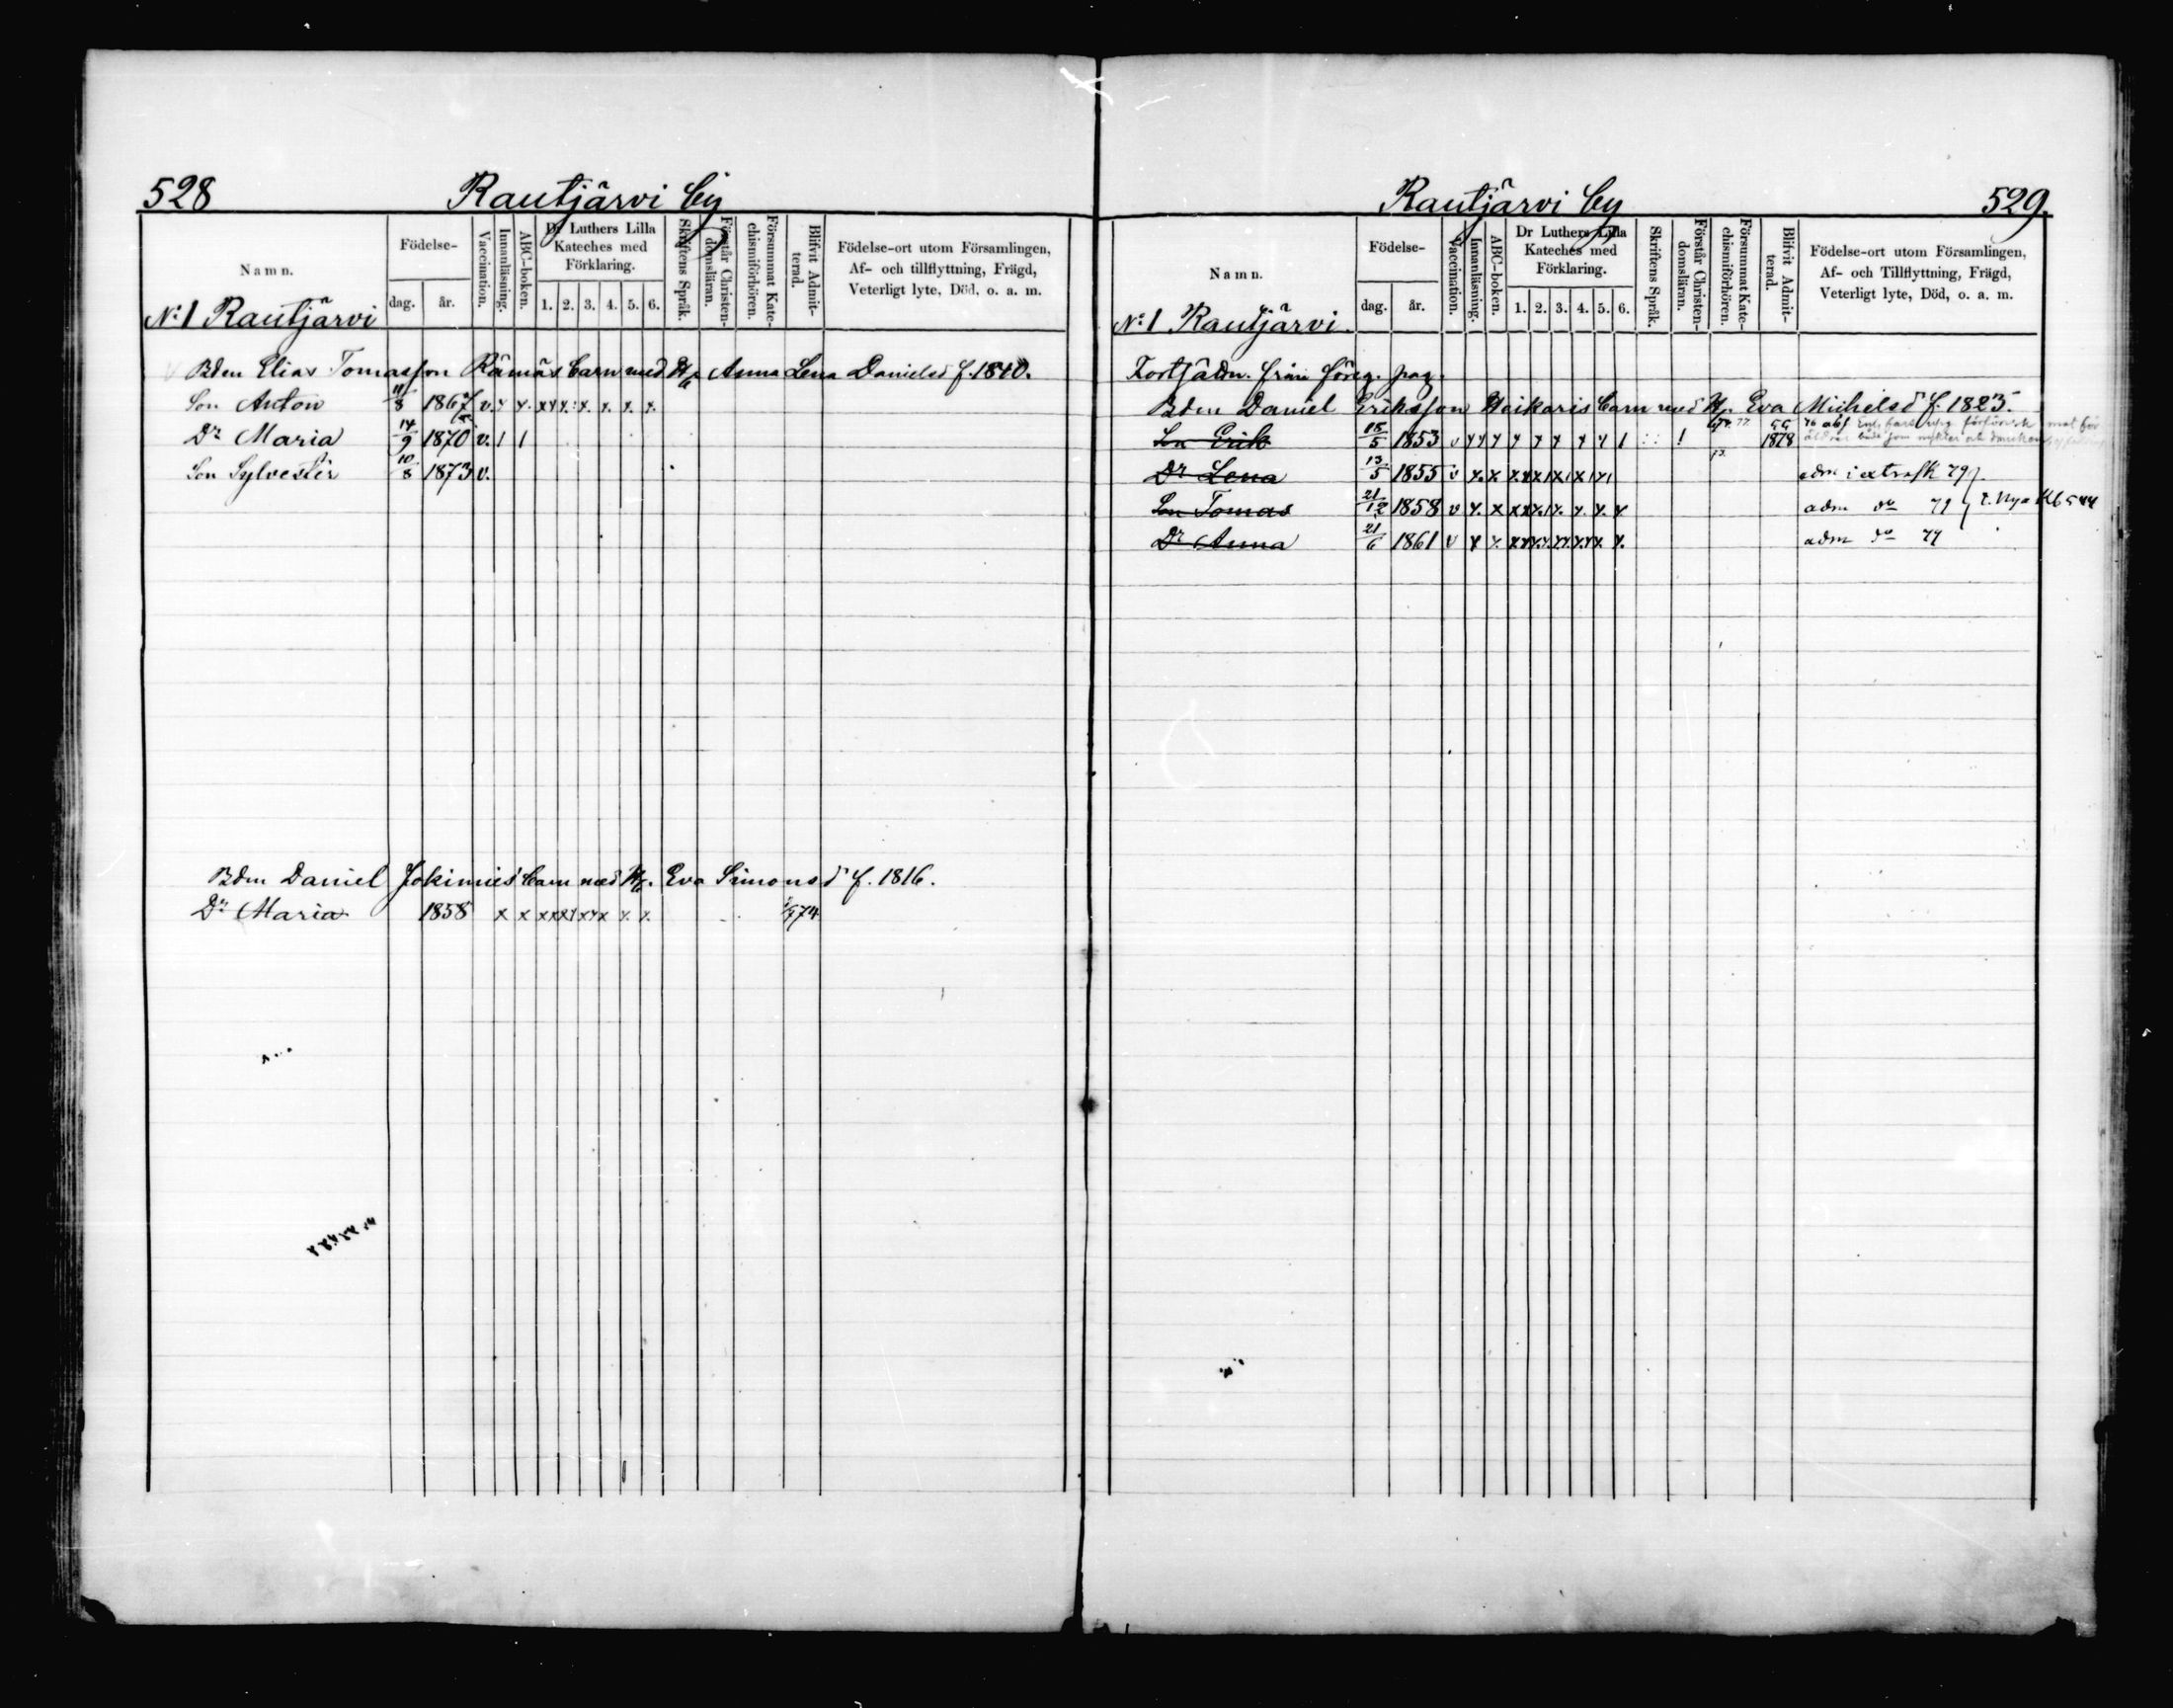 528 Rautjärvi by
Namn. Födelse- dag. år. Vaccination. Innanläsning. ABC-boken. Dr Luthers Lilla Kateches med Förklaring. 1. 2. 3. 4. 5. 6. Skriftens Språk. Förstår Christendomsläran. Försummat Katechismiförhören. Blifvit Admitterad. Födelse-ort utom Församlingen, Af- och tillflyttning, Frägd, Veterligt lyte, Död, o. a. m.
N:1 Rautjärvi
Bdn Elias Tomasson Rämäs barn med H. Anna Lena Danielsd f. 1840.
Son Anton 11/8 1867 v. x x. x x x : x. x. x. x.
Dr Maria 14/9 1870 v. / /
Son Sylvester 10/8 1873 v.
Bdn Daniel Jokimies barn med H. Eva Simonsd f. 1816.
Dr Maria 1858 x x x x x x x x x x. x. 74
Rautjärvi by 529.
Namn. Födelse- dag. år. Vaccination. Innanläsning. ABC-boken. Dr Luthers Lilla Kateches med Förklaring. 1. 2. 3. 4. 5. 6. Skriftens Språk. Förstår Christendomsläran. Försummat Katechismiförhören. Blifvit Admitterad. Födelse-ort utom Församlingen, Af- och Tillflyttning, Frägd, Veterligt lyte, Död, o. a. m.
N:1 Rautjärvi.
Forts. från föreg. pag.
Bdn Daniel Eriksson Heikaris barn med H. Eva Michelsd f. 1823.
Son Erik 18/5 1853 v x x x x x x x x x 1 : : ! 1878
Dr Lena 13/5 1855 v x. x x. x x x x 1 adm i extra sk 79
Son Tomas 21/12 1858 v x. x x x x. x. x. x. x. adm do 79 t. Nya Kb 544
Dr Anna 21/6 1861 v x x. x x x. x. x x. x. x x. x. adm do 79